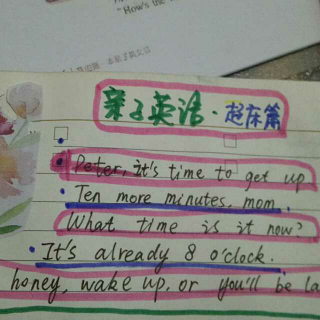 "How's the
亲子英语·起床篇
Peter, it's time to get up.
Ten more minutes, mom.
What time is it now?
It's already 8 o'clock.
honey, wake up, or you'll be la